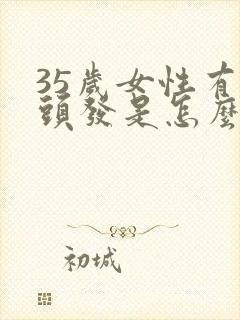 35歲女性有
頭發是怎麼
初城